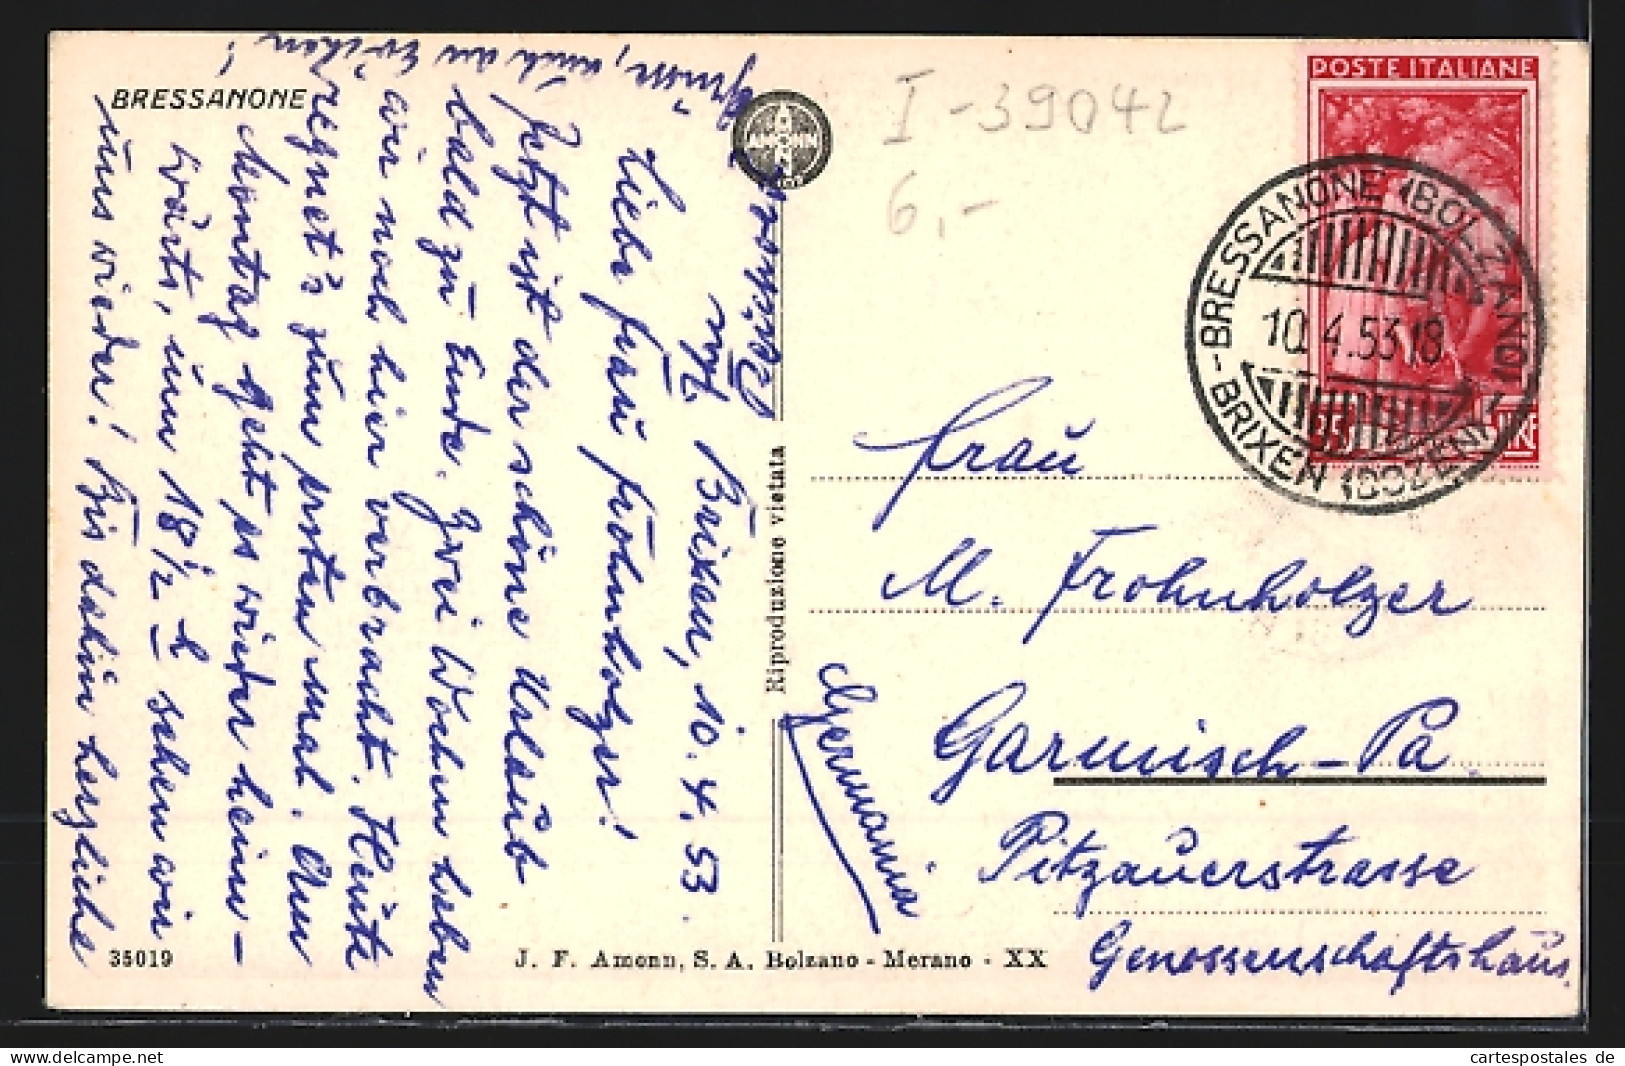 BRESSANONE
Brixen, 10.4.53.
Liebe Frau Frohnholzer!
Jetzt ist der schöne Urlaub
bald zu Ende. Zwei Wochen haben
wir noch hier verbracht. Heute
regnet's zum ersten mal. Am
Montag geht es wieder heim-
wärts, um 18 1/2 h sehen wir
uns wieder! Bis dahin herzliche
Grüsse, auch an
35019
AMONN
Riproduzione vietata
J. F. Amonn, S. A. Bolzano - Merano - XX
I-39042
6,-
POSTE ITALIANE
BRESSANONE (BOLZANO)
10.4.53 18
BRIXEN (BOZEN)
Frau
M. Frohnholzer
Garmisch-Pa.
Pitzauerstrasse
Genossenschaftshaus.
Germania
cartespostales de